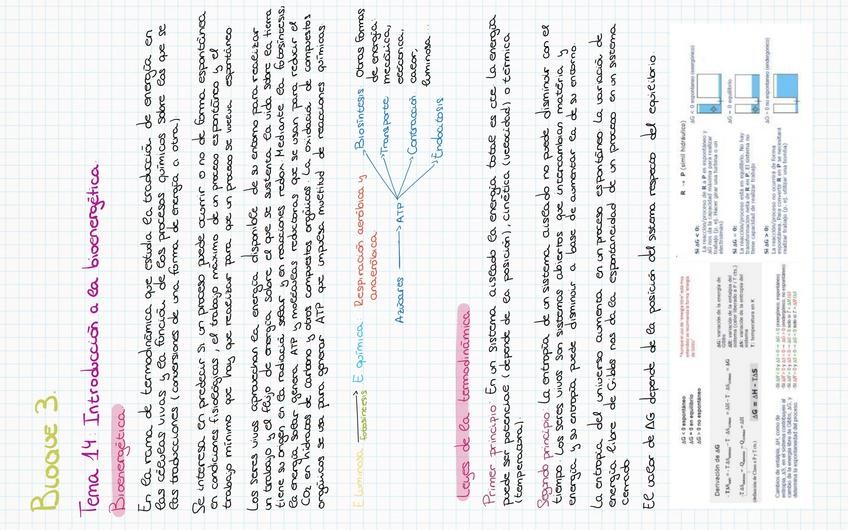 BLOQUE 3.
Tema 14: Introducción a la bioenergética.
Bioenergética
En la rama de termodinámica que estudia la traducción de energía en
las células vivas y la función de los procesos químicos sobre los que se
las traducciones (conversiones de una forma de energía a otra)
Se interesa en predecir si un proceso puede ocurrir o no de forma espontánea
en condiciones fisiológicas, el trabajo máximo de un proceso espontáneo y el
trabajo mínimo que hay que realizar para que un proceso se vuelva espontáneo
Los seres vivos aprovechan la energía disponible de su entorno para realizar
un trabajo y el flujo de energía sobre el que se sustenta la vida sobre la tierra
tiene su origen en la radiación solar y en reacciones redox. Mediante la fotosíntesis,
la energía solar genera ATP y moléculas reductoras que se usan para reducir el
CO2 en hidratos de carbono y otros compuestos orgánicos. La oxidación de compuestos
orgánicos se usa para generar ATP que impulsa multitud de reacciones químicas
E luminosa
fotosíntesis
E química
Respiración aeróbica y
anaeróbica
Azúcares
ATP
Biosíntesis
Transporte
Contracción
Endocitosis
Otras formas
de energía
mecánica,
eléctrica,
calor,
luminosa...
Leyes de la termodinámica
Primer principio En un sistema aislado la energía total es cte. La energía
puede ser potencial (depende de la posición), cinética (velocidad) o térmica
(temperatura)
Segundo principio La entropía de un sistema aislado no puede disminuir con el
tiempo. Los seres vivos son sistemas abiertos que intercambian materia y
energía y su entropía puede disminuir a base de aumentar la de su entorno
La entropía del universo aumenta en un proceso espontáneo. La variación de
energía libre de Gibbs nos da la espontaneidad de un proceso en un sistema
cerrado
El valor de ΔG depende de la posición del sistema respecto del equilibrio.
ΔG < 0 espontáneo
ΔG = 0 en equilibrio
ΔG > 0 no espontáneo
Derivación de ΔG
ΔG = ΔH - TΔS
ΔG: variación de la energía de
T: temperatura en K
Cambios de entalpía, ΔH, como de
determina la espontaneidad del proceso.
R → P (símil hidráulico)
Si ΔG < 0:
La reacción/proceso de R a P es espontáneo y
ΔG nos da la capacidad máxima para realizar
trabajo (p. ej. Hacer girar una turbina o un
Si ΔG = 0:
La reacción/proceso está en equilibrio. No hay
transformación neta de R en P. El sistema no
tiene capacidad de realizar trabajo
Si ΔG > 0:
La reacción/proceso no ocurrirá de forma
espontánea. Para convertir R en P se necesitará
realizar trabajo (p. ej. utilizar una bomba)
ΔG < 0 espontáneo (exergónico)
ΔG = 0 equilibrio
ΔG > 0 no espontáneo (endergónico)